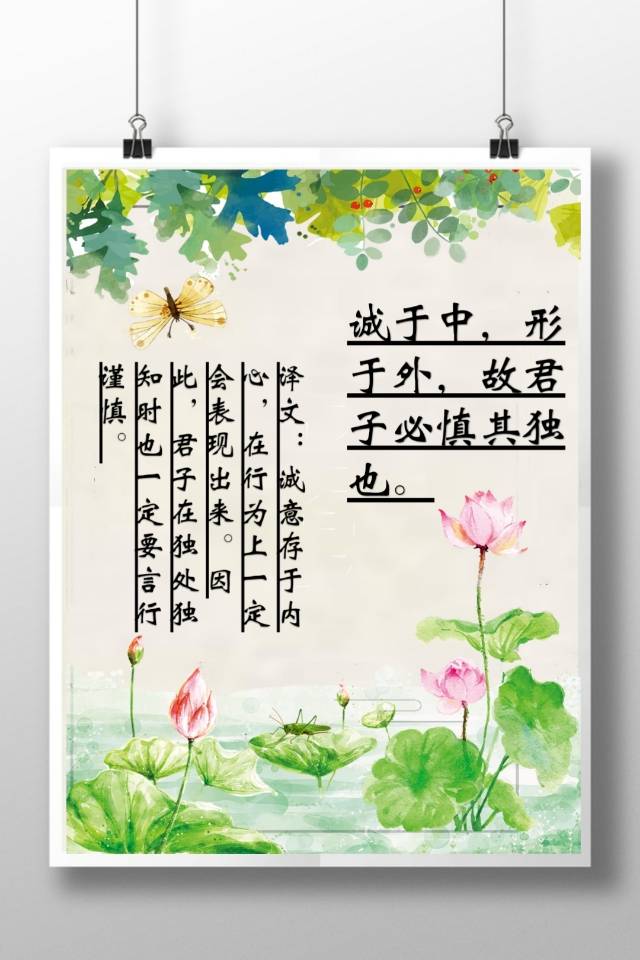 诚于中，形
于外，故君
子必慎其独
也。
译文：诚意存于内
心，在行为上一定
会表现出来。因
此，君子在独处独
知时也一定要言行
谨慎。